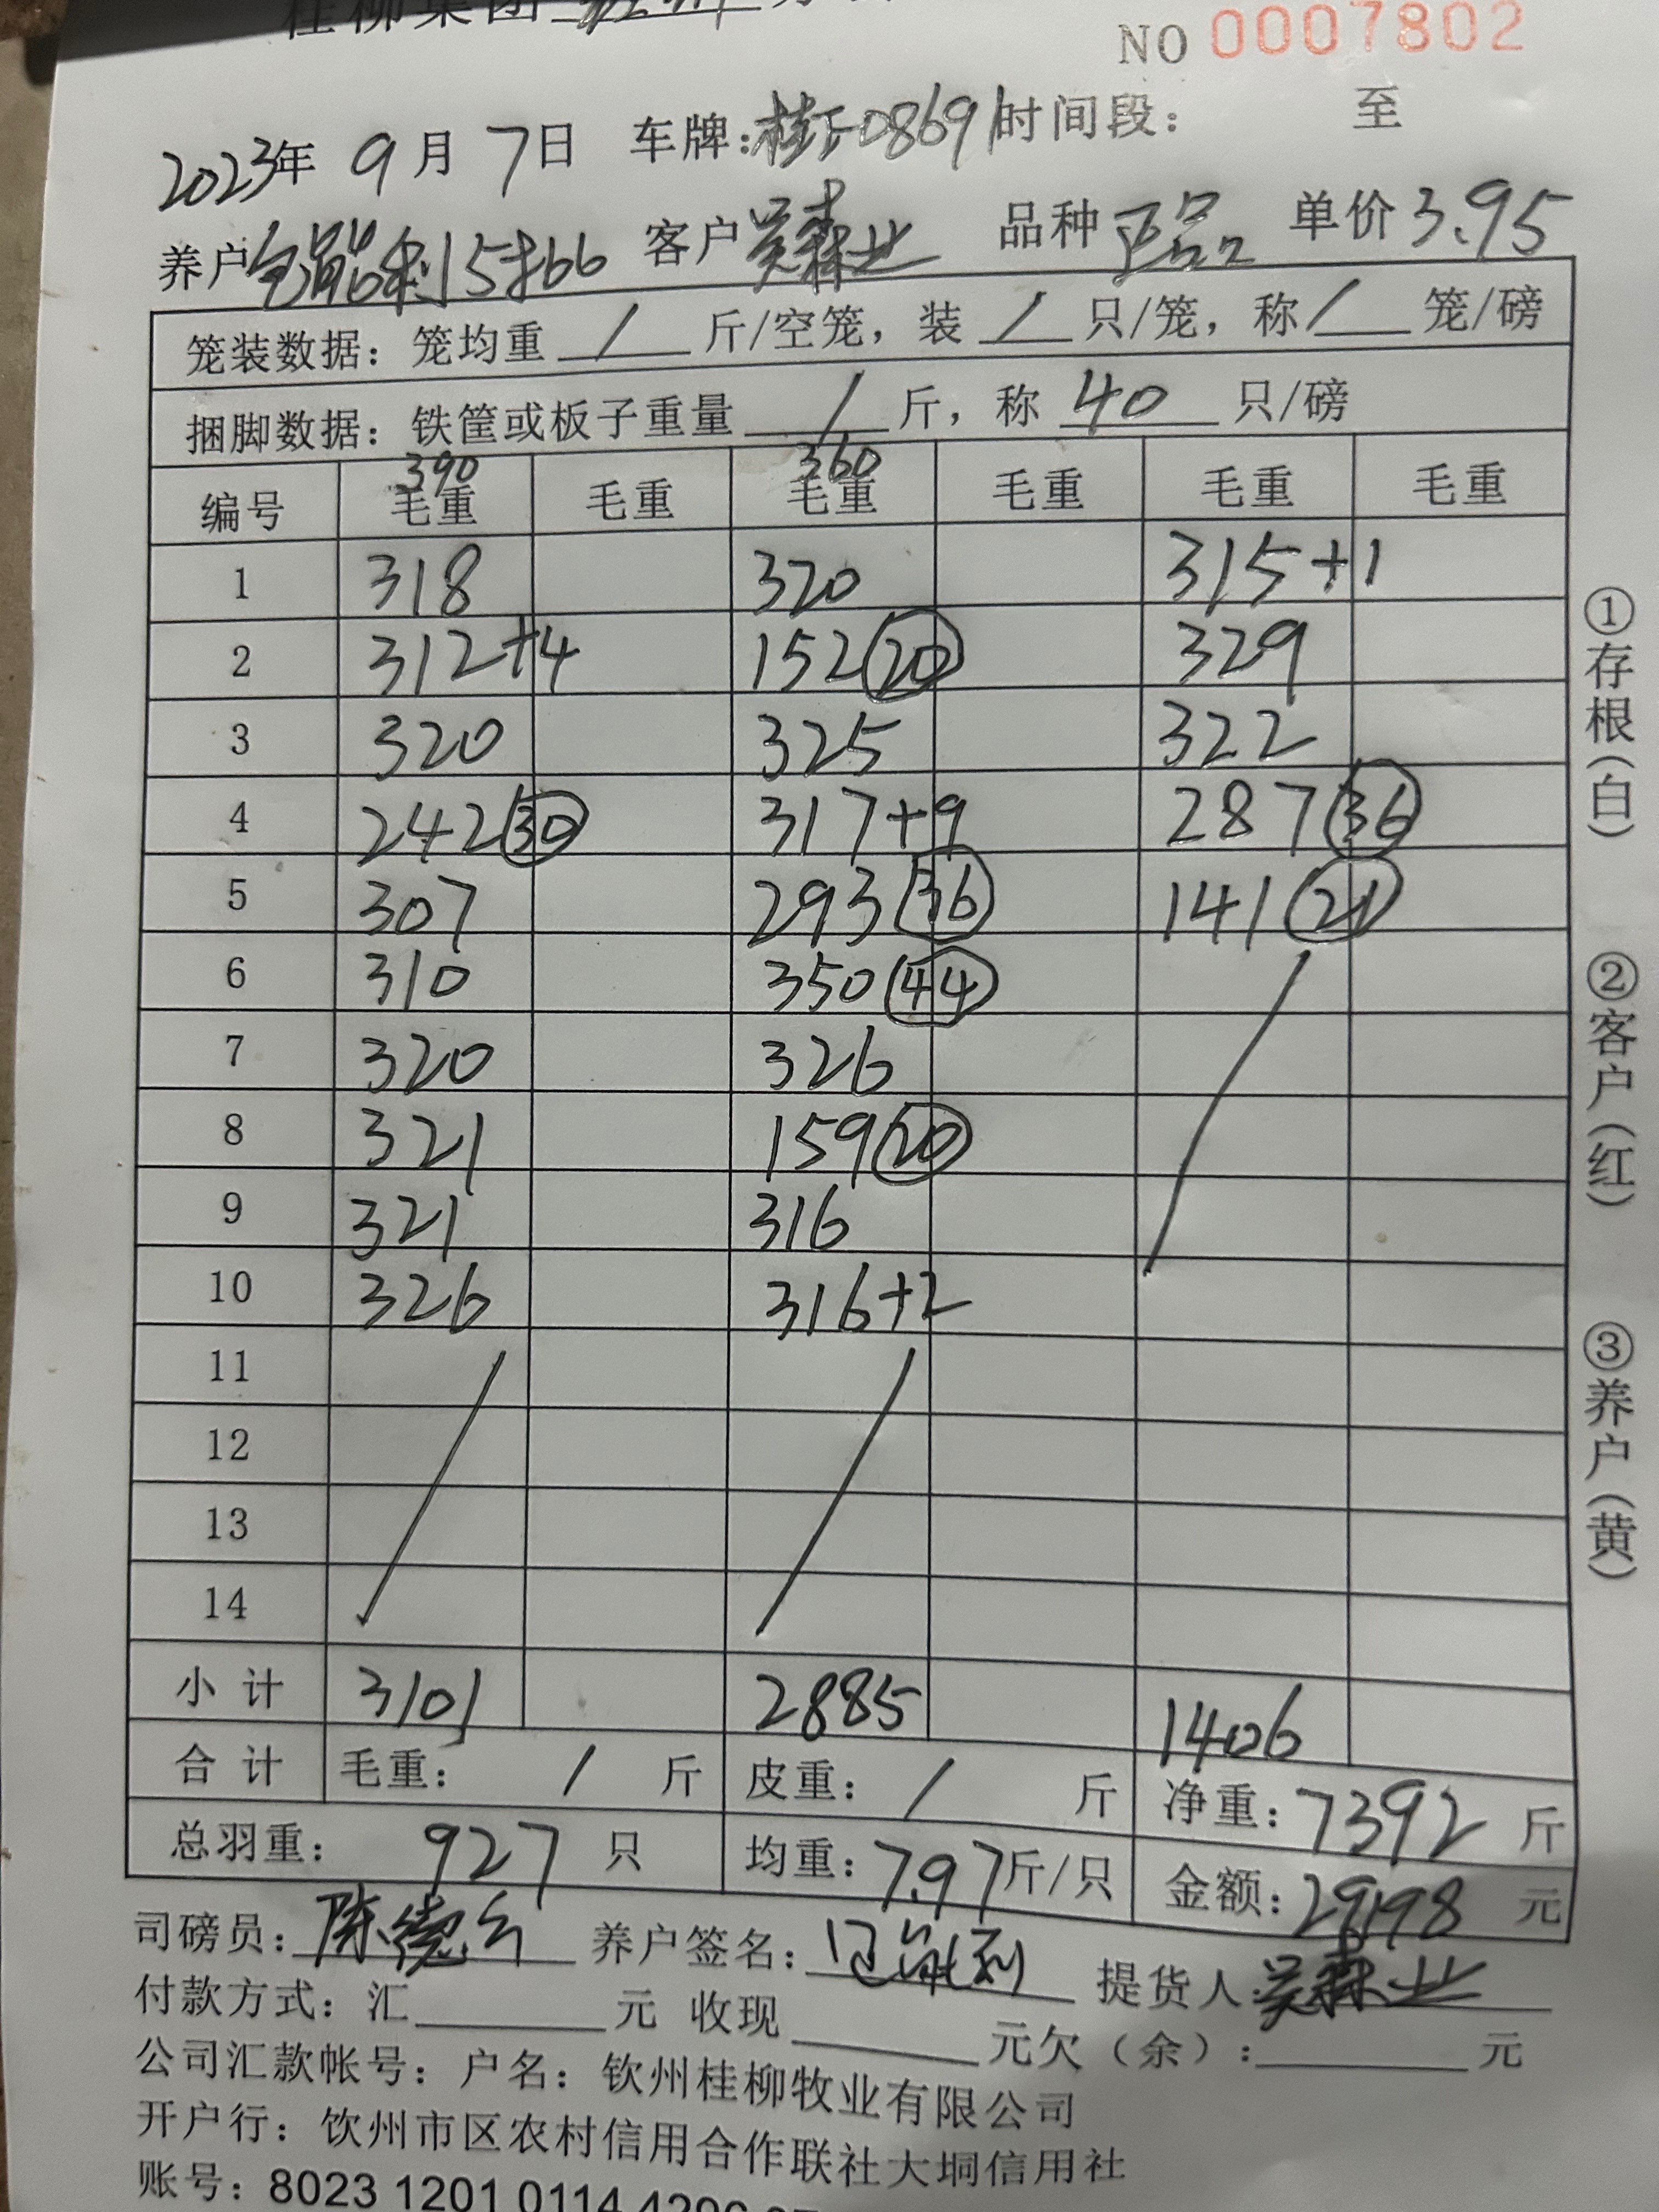 桂柳集团
NO 0007802
2023年 9月 7日 车牌:桂F-08691 时间段: 至
养户 能利15批66 客户 吴森业 品种 正品 单价 3.95
笼装数据: 笼均重 / 斤/空笼, 装 / 只/笼, 称 / 笼/磅
捆脚数据: 铁筐或板子重量 / 斤, 称 40 只/磅
390 360
编号 毛重 毛重 毛重 毛重 毛重 毛重
1 318 320 315+1
2 312+4 152(20) 329
3 320 325 322
4 242(30) 317+9 287(36)
5 307 293(36) 141(21)
6 310 350(44)
7 320 326
8 321 159(20)
9 321 316
10 326 316+2
11
12
13
14
小计 3101 2885 1406
合计 毛重: / 斤 皮重: / 斤 净重: 7392 斤
总羽重: 927 只 均重: 7.97 斤/只 金额: 29198 元
司磅员: 陈德 养户签名: 能利 提货人: 吴森业
付款方式: 汇 元 收现 元欠(余): 元
公司汇款帐号: 户名: 钦州桂柳牧业有限公司
开户行: 钦州市区农村信用合作联社大垌信用社
账号: 8023 1201 0114 4296
①存根(白)
②客户(红)
③养户(黄)